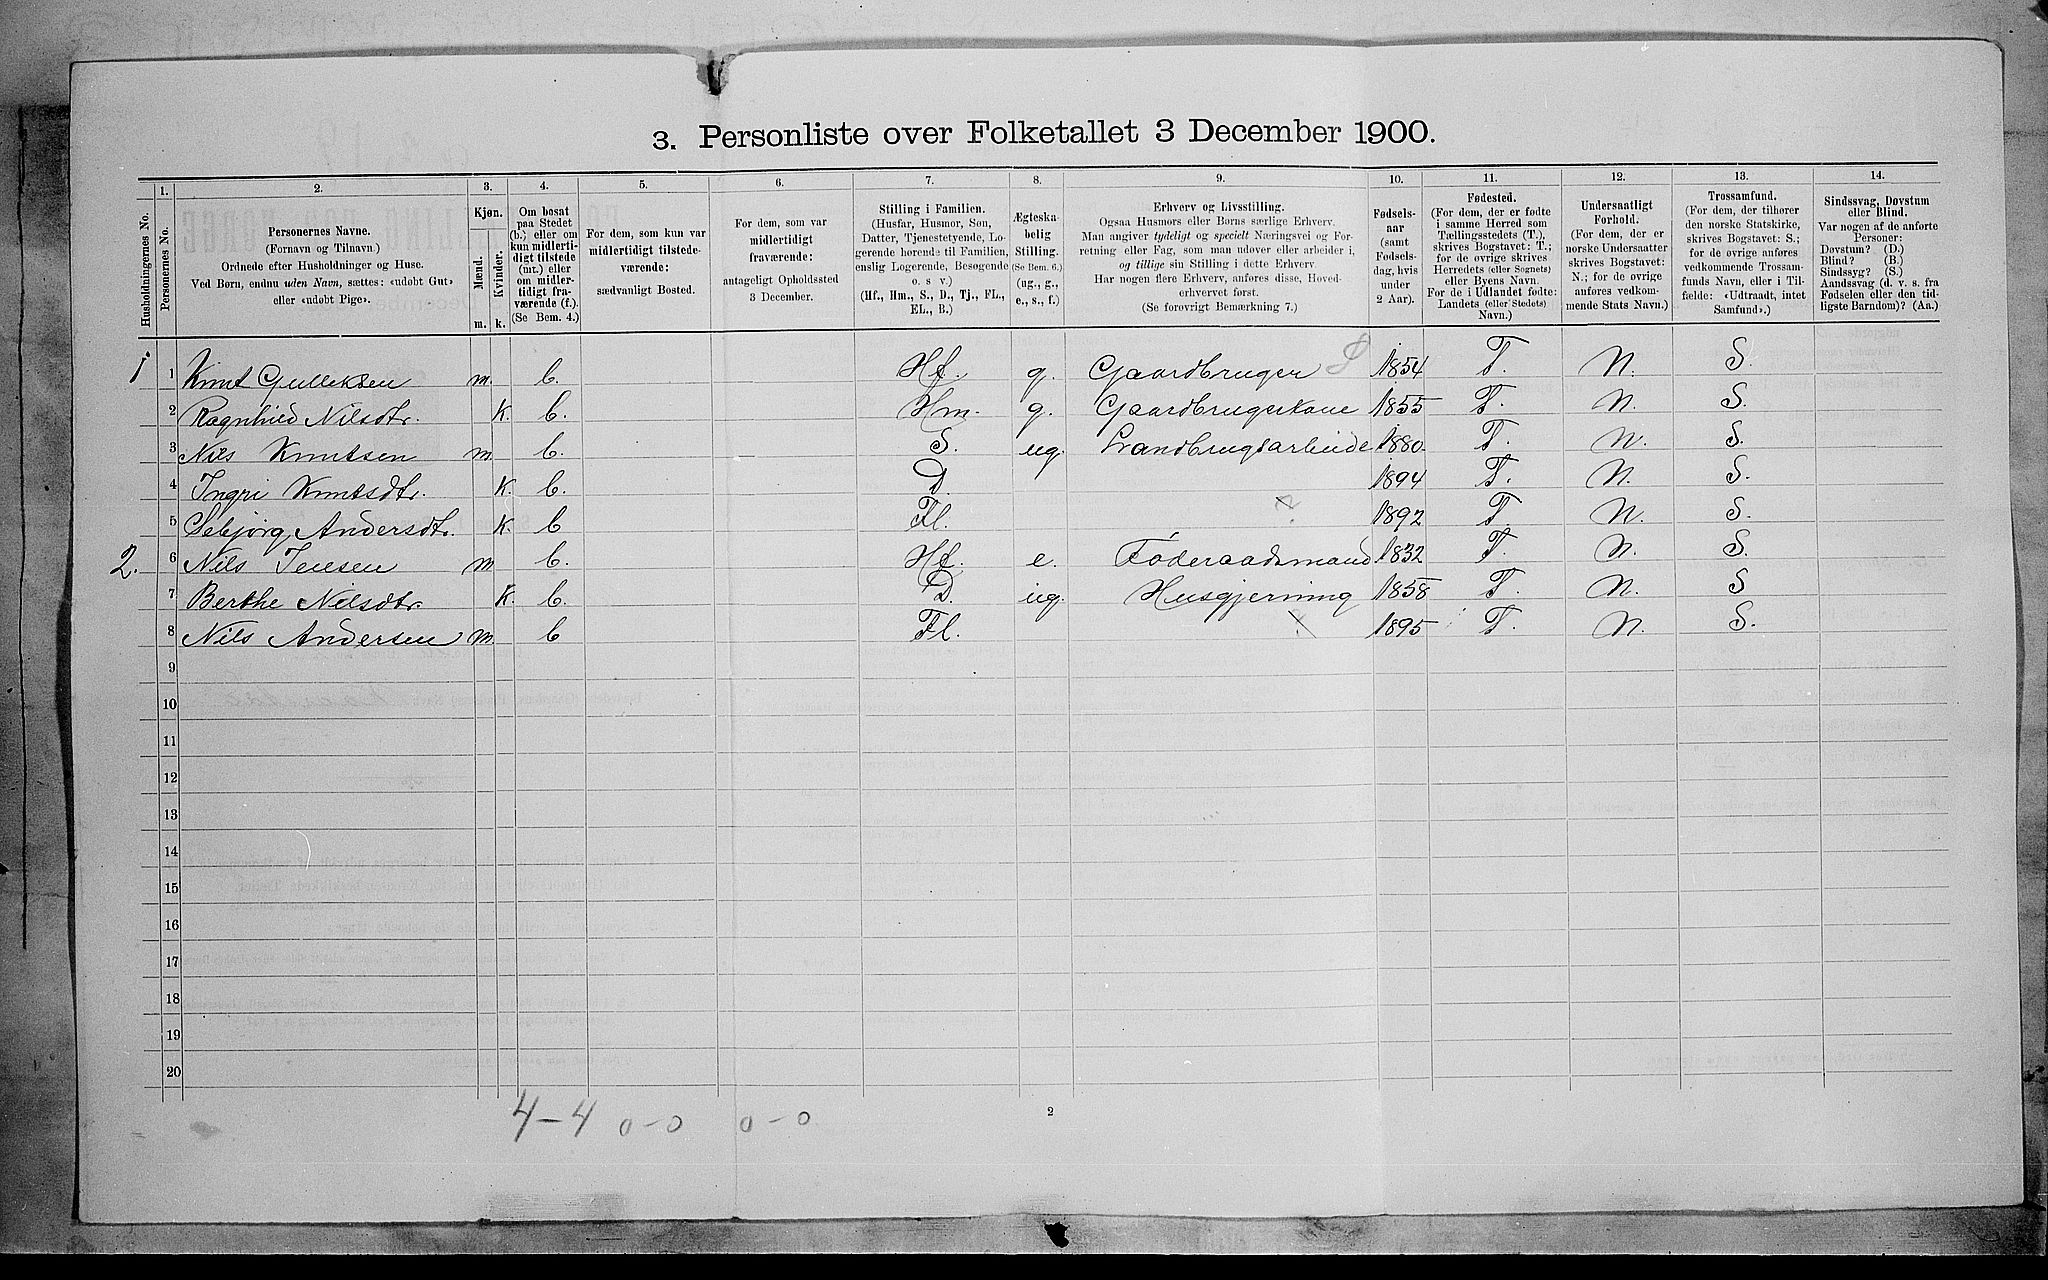 3. Personliste over Folketallet 3 December 1900.
1. 2. 3. 4. 5. 6. 7. 8. 9. 10. 11. 12. 13. 14.
Husholdningernes No.
Personernes No.
Personernes Navne.
(Fornavn og Tilnavn.)
Ordnede efter Husholdninger og Huse.
Ved Børn, endnu uden Navn, sættes: «udøbt Gut»
eller «udøbt Pige».
Kjøn.
Mænd.
Kvinder.
m. k.
Om bosat
paa Stedet
(b.) eller om
kun midlerti-
digt tilstede
(mt.) eller
om midler-
tidigt fra-
værende (f.).
(Se Bem. 4.)
For dem, som kun var
midlertidigt tilstede-
værende:
sædvanligt Bosted.
For dem, som var
midlertidigt
fraværende:
antageligt Opholdssted
3 December.
Stilling i Familien.
(Husfar, Husmor, Søn,
Datter, Tjenestetyende, Lo-
gerende hørende til Familien,
enslig Logerende, Besøgende
o. s. v.)
(Hf., Hm., S., D., Tj., FL.,
EL., B.)
Ægteska-
belig
Stilling.
(Se Bem. 6.)
(ug., g.,
e., s., f.)
Erhverv og Livsstilling.
Ogsaa Husmors eller Børns særlige Erhverv.
Man angiver tydeligt og specielt Næringsvei og For-
retning eller Fag, som man udøver eller arbeider i,
og tillige sin Stilling i dette Erhverv.
Har nogen flere Erhverv, anføres disse, Hoved-
erhvervet først.
(Se forøvrigt Bemærkning 7.)
Fødsels-
aar
(samt
Fødsels-
dag, hvis
under
2 Aar).
Fødested.
(For dem, der er fødte
i samme Herred som
Tællingsstedets (T.),
skrives Bogstavet: T.;
for de øvrige skrives
Herredets (eller Sognets)
eller Byens Navn.
For de i Udlandet fødte:
Landets (eller Stedets)
Navn.)
Undersaatligt
Forhold.
(For dem, der er
norske Undersaatter
skrives Bogstavet:
N.; for de øvrige
anføres vedkom-
mende Stats Navn.)
Trossamfund.
(For dem, der tilhører
den norske Statskirke,
skrives Bogstavet: S.;
for de øvrige anføres
vedkommende Trossam-
funds Navn, eller i Til-
fælde: «Udtraadt, intet
Samfund».)
Sindssvag, Døvstum
eller Blind.
Var nogen af de anførte
Personer:
Døvstum? (D.)
Blind? (B.)
Sindssyg? (S.)
Aandssvag (d. v. s. fra
Fødselen eller den tid-
ligste Barndom)? (Aa.)
1 1 Knut Gulleksen m. b. Hf. g. Gaardbruger 1854 T. N. S.
2 Ragnhild Nilsdtr. k. b. Hm. g. Gaardbrugerkone 1855 T. N. S.
3 Nils Knutsen m. b. S. ug. Landbrugsarbeide 1880 T. N. S.
4 Ingri Knutsdtr. k. b. D. 1894 T. N. S.
5 Sebjörg Andersdtr. k. b Fl. 1892 T. N. S.
2. 6 Nils Jensen m b. Hf. e. Föderaadsmand 1832 T. N. S.
7 Berthe Nilsdtr. k. b. D. ug. Husgjerning 1858 T. N. S
8 Nils Andersen m. b Fl. 1895 T. N. S.
9
10
11
12
13
14
15
16
17
18
19
20
4-4 0-0 0-0
2